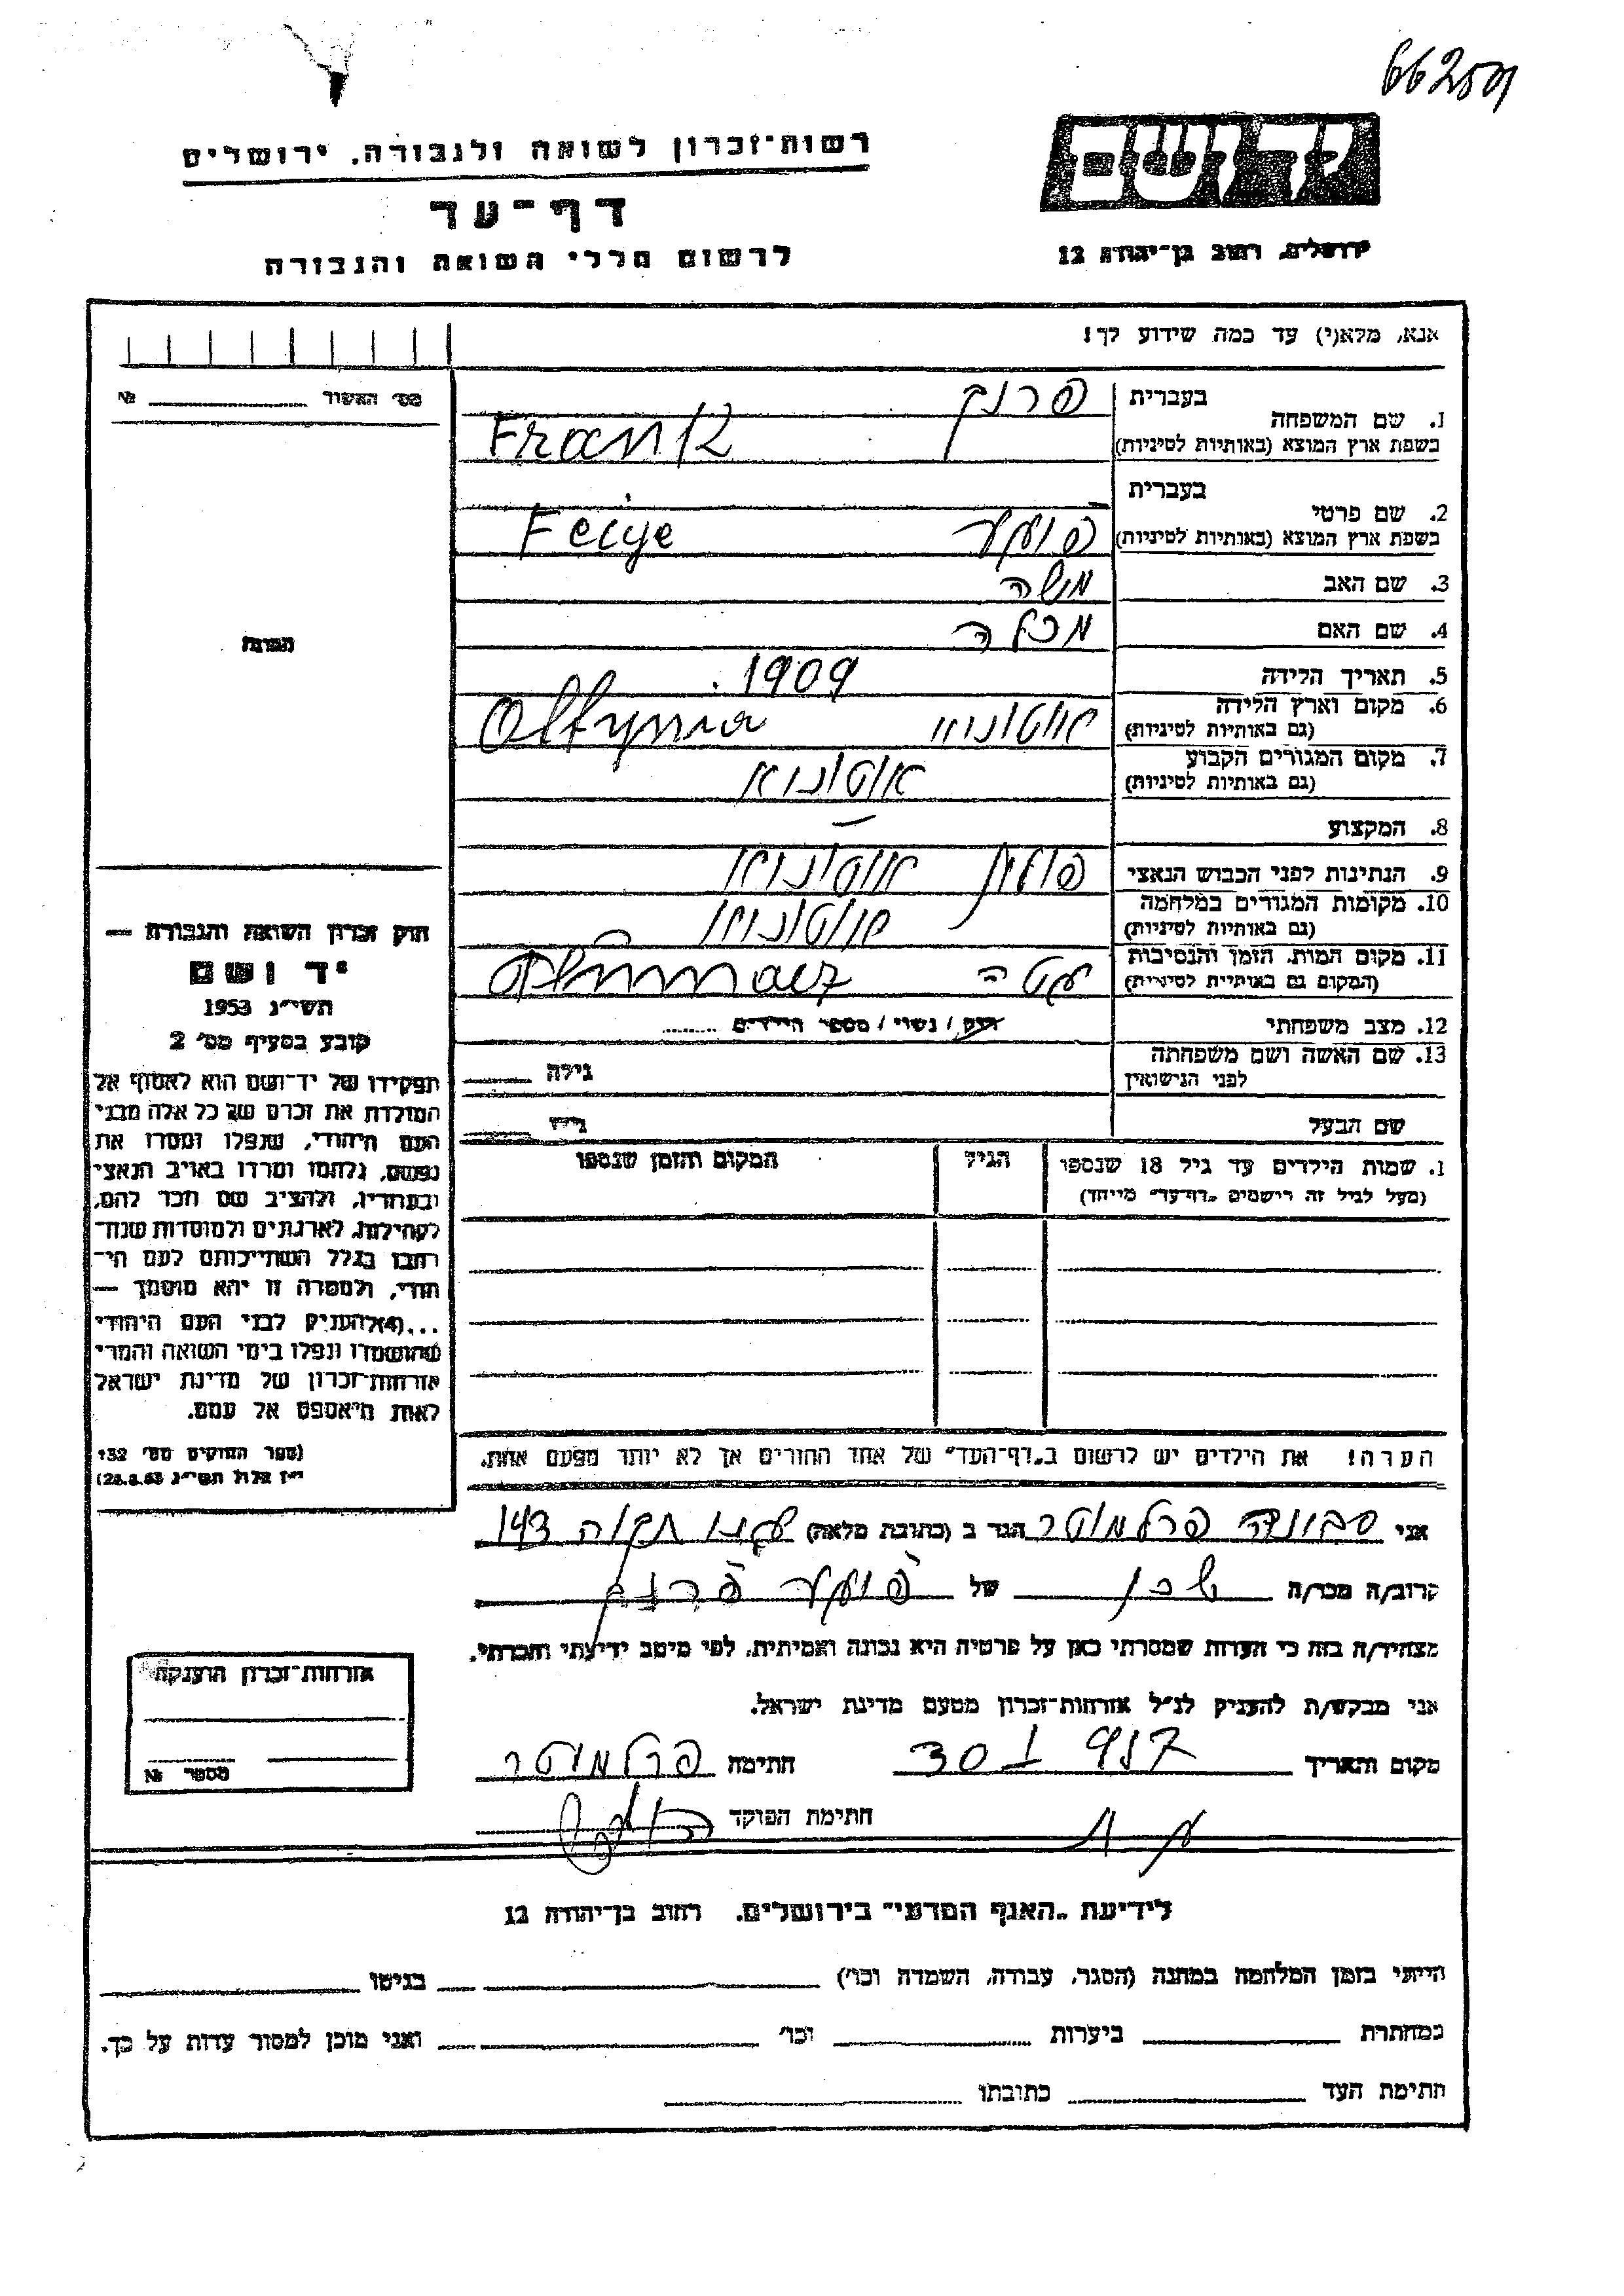 66259
רשות־זכרון לשואה ולגבורה, ירושלים
יד ושם
דף־עד
ירושלים, רחוב בן־יהודה 12
לרשום חללי השואה והגבורה
אנא, מלא(י) עד כמה שידוע לך!
מס׳ האשור № 
בעברית פרנק
1. שם המשפחה
בשפת ארץ המוצא (באותיות לטיניות) Frank
בעברית
2. שם פרטי
בשפת ארץ המוצא (באותיות לטיניות) Feige
3. שם האב משה
4. שם האם מכלה
5. תאריך הלידה 1909
6. מקום וארץ הלידה
(גם באותיות לטיניות)
7. מקום המגורים הקבוע
(גם באותיות לטיניות)
8. המקצוע —
9. הנתינות לפני הכבוש הנאצי
10. מקומות המגורים במלחמה
(גם באותיות לטיניות)
11. מקום המות, הזמן והנסיבות
(המקום גם באותיות לטיניות)
12. מצב משפחתי רווק / נשוי / מספר הילדים ........
13. שם האשה ושם משפחתה
לפני הנישואין גילה
שם הבעל גילו
1. שמות הילדים עד גיל 18 שנספו הגיל המקום והזמן שנספו
(מעל לגיל זה רישמים „דף־עד” מייוחד)
הערה! את הילדים יש לרשום ב„דף־העד” של אחד ההורים אך לא יותר מפעם אחת.
התמונה
חוק זכרון השואה והגבורה —
יד ושם
תשי״ג 1953
קובע בסעיף מס׳ 2
תפקידו של יד־ושם הוא לאסוף אל
המולדת את זכרם של כל אלה מבני
העם היהודי, שנפלו ומסרו את
נפשם, נלחמו ומרדו באויב הנאצי
ובעוזריו, ולהציב שם וזכר להם,
לקהילות, לארגונים ולמוסדות שנח־
רבו בגלל השתייכותם לעם הי־
הודי, ולמטרה זו יהא מוסמך —
...(4)להעניק לבני העם היהודי
שהושמדו ונפלו בימי השואה והמרי
אזרחות־זכרון של מדינת ישראל
לאות היאספם אל עמם.
(ספר החוקים מס׳ 132
י״ז אלול תשי״ג 28.8.53)
אני פרלמוטר הגר ב (כתובת מלאה) תקוה 143
קרוב/ה מכר/ה שכן של פרנק
מצהיר/ה בזה כי העדות שמסרתי כאן על פרטיה היא נכונה ואמיתית, לפי מיטב ידיעתי והכרתי.
אני מבקש/ת להעניק לנ״ל אזרחות־זכרון מטעם מדינת ישראל.
מקום והאריך חתימה פרלמוטר
חתימת הפוקד
אזרחות־זכרון הוענקה
מספר №
לידיעת „האגף המדעי” בירושלים, רחוב בן־יהודה 12
הייתי בזמן המלחמה במחנה (הסגר, עבודה, השמדה וכו׳) בגיטו
במחתרת ביערות וכו׳ ואני מוכן למסור עדות על כך.
חתימת העד כתובתו